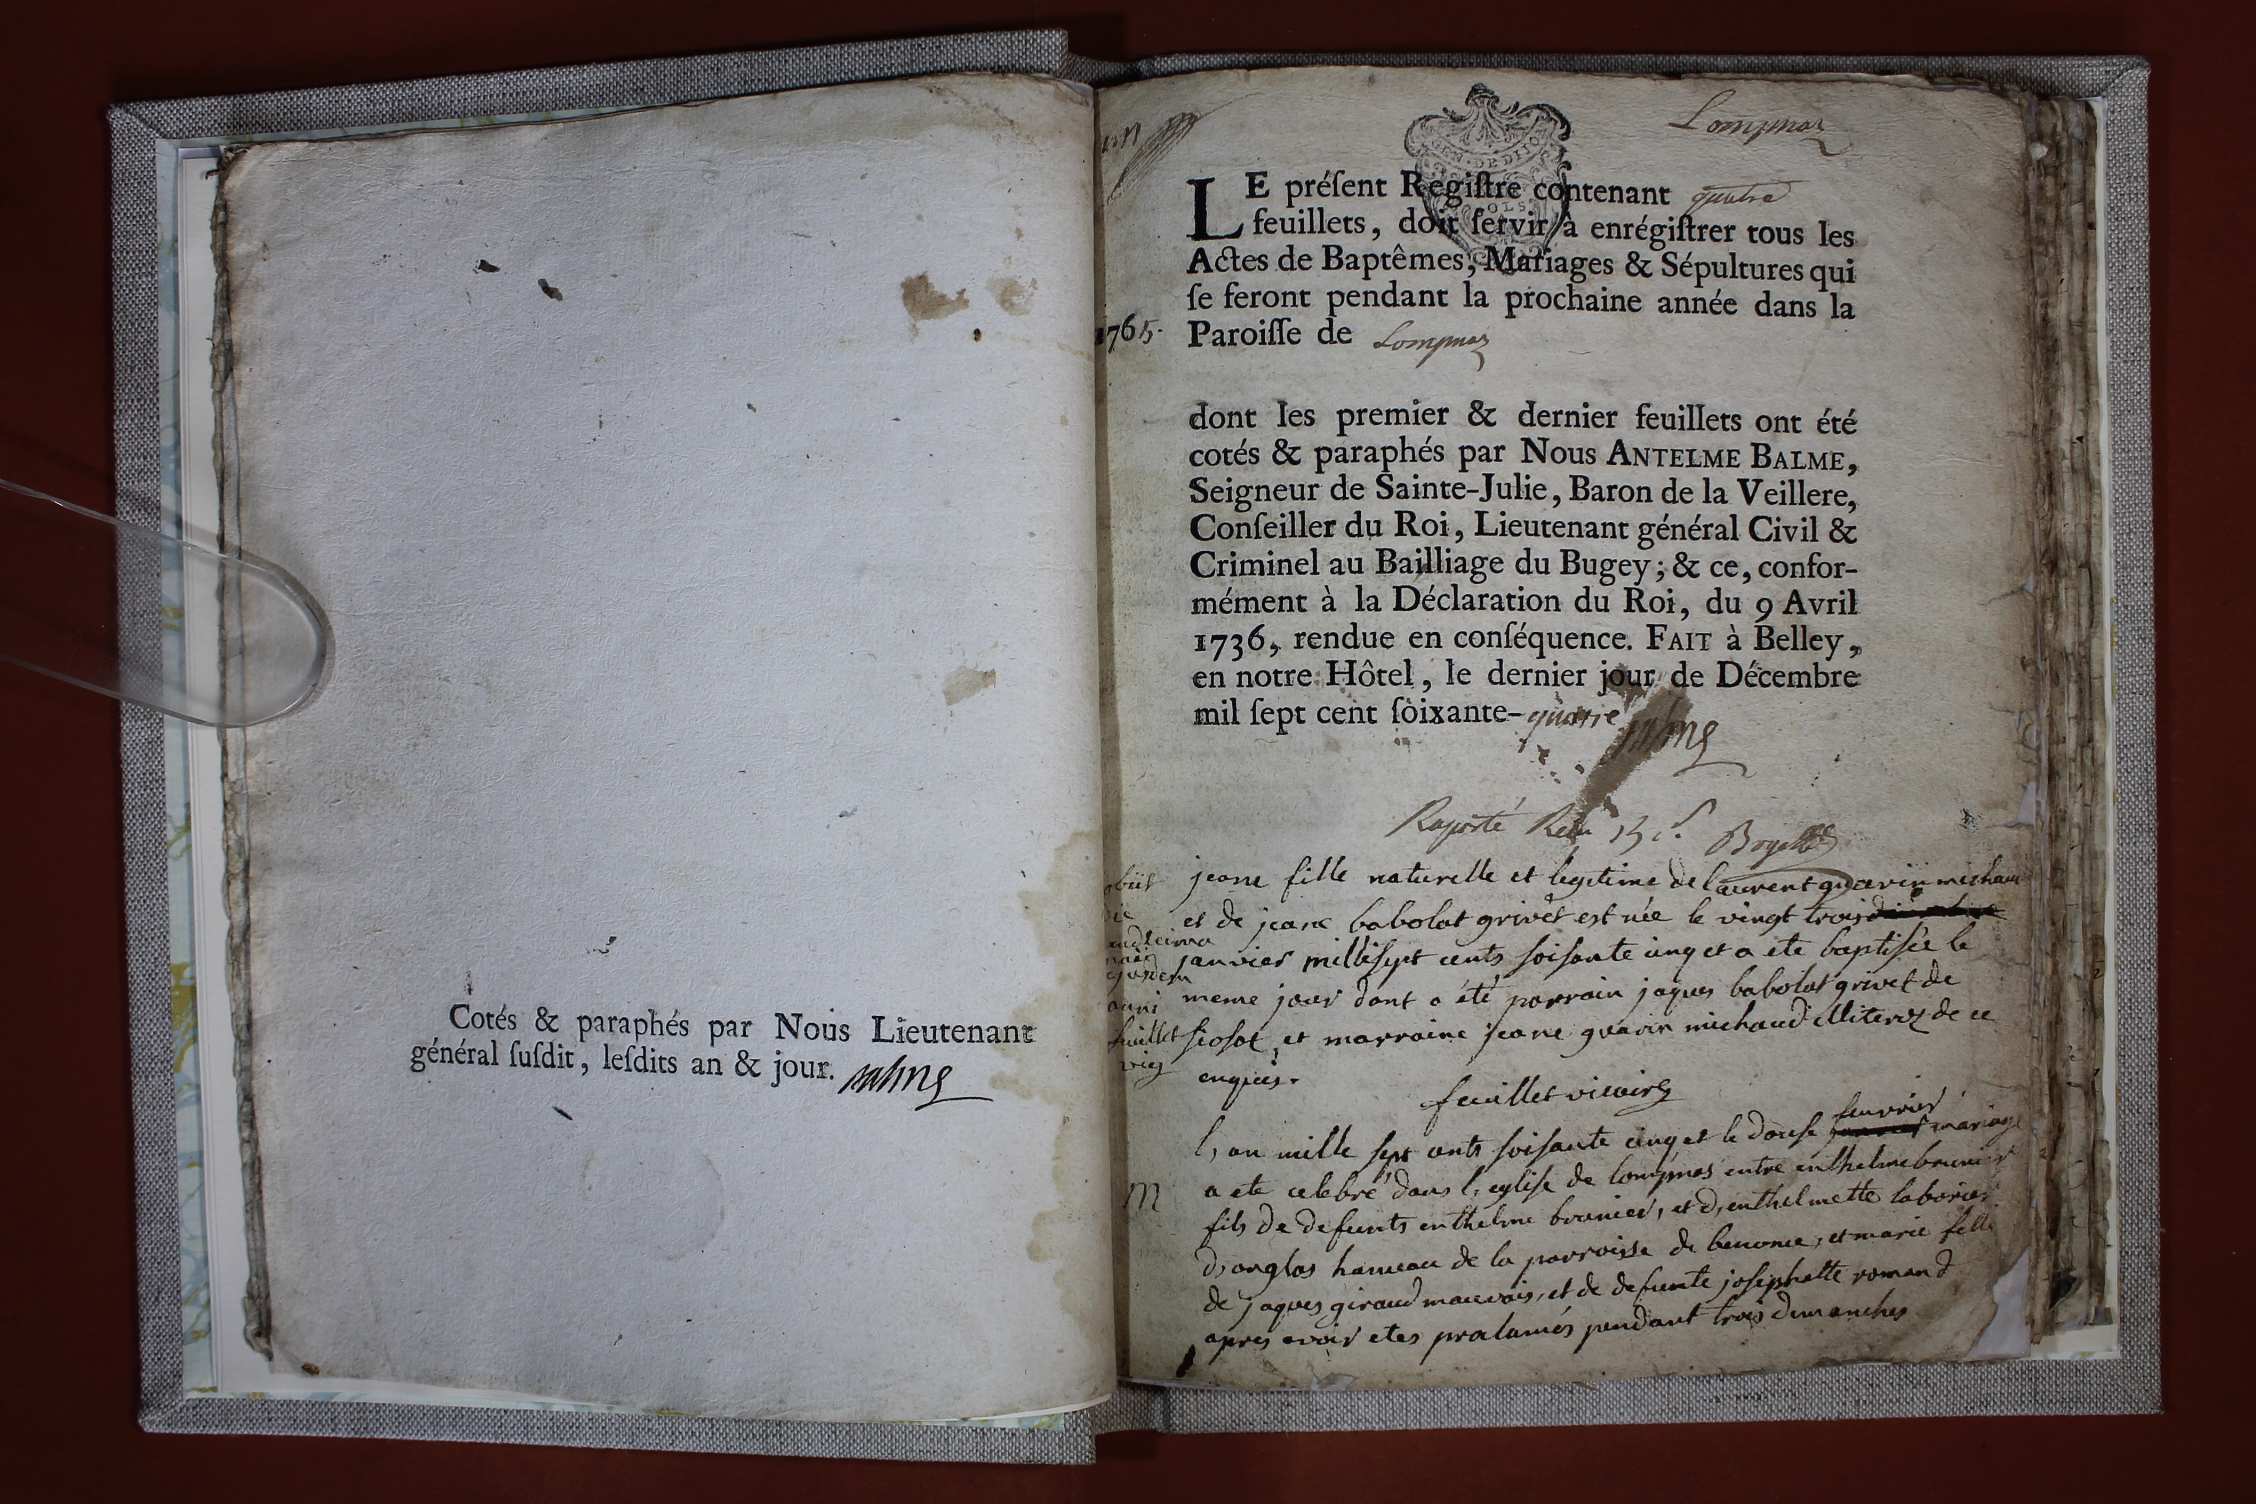 Cotés & paraphés par Nous Lieutenant
général ſuſdit, leſdits an & jour. Balme
Lompnaz
GEN. DE DIJON
LE préſent Regiſtre contenant quatre
feuillets, doit ſervir à enrégiſtrer tous les
Actes de Baptêmes, Mariages & Sépultures qui
ſe feront pendant la prochaine année dans la
1765. Paroiſſe de Lompnaz
dont les premier & dernier feuillets ont été
cotés & paraphés par Nous ANTELME BALME,
Seigneur de Sainte-Julie, Baron de la Veillere,
Conſeiller du Roi, Lieutenant général Civil &
Criminel au Bailliage du Bugey; & ce, confor-
mément à la Déclaration du Roi, du 9 Avril
1736, rendue en conſéquence. FAIT à Belley,
en notre Hôtel, le dernier jour de Décembre
mil ſept cent ſoixante-quatre Balme
Raporté Reçu 15 s.
jeane fille naturelle et legitime de laurent guavin michaud
et de jeane babolat grivet est née le vingt trois
janvier mille sept cents soisante cinq et a ete baptisée le
meme jour dont a été parrain jaques babolat grivet de
et marraine jeane guavin michaud illiterez de ce
enquis.
obiit
die
ejusdem
anni
feuillet
vic
feuillet vicaire
l, an mille sept cents soisante cinq et le douse feuvrier mariage
M a ete celebré dans l, eglise de lompnas entre enthelme brunier
fils de defunts enthelme brunier, et d, enthelmette laborier
d, anglas hameau de la parroisse de benonce, et marie fille
de jaques giraud mauvais, et de defunte josephatte romand
apres avoir etes proclamés pendant trois dimanches